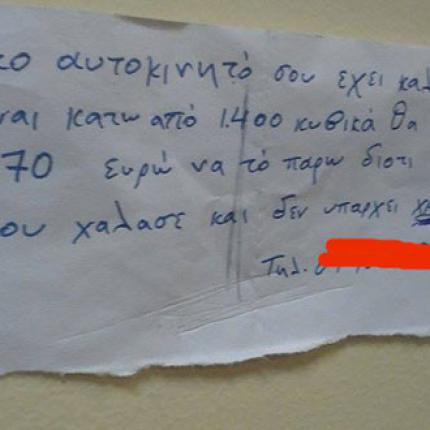 το αυτοκινητό σου έχει καλ
ναι κατω από 1.400 κυβικά θα
70 ευρώ να τό παρω διοτι
ου χαλασε και δεν υπαρχει
Τηλ.